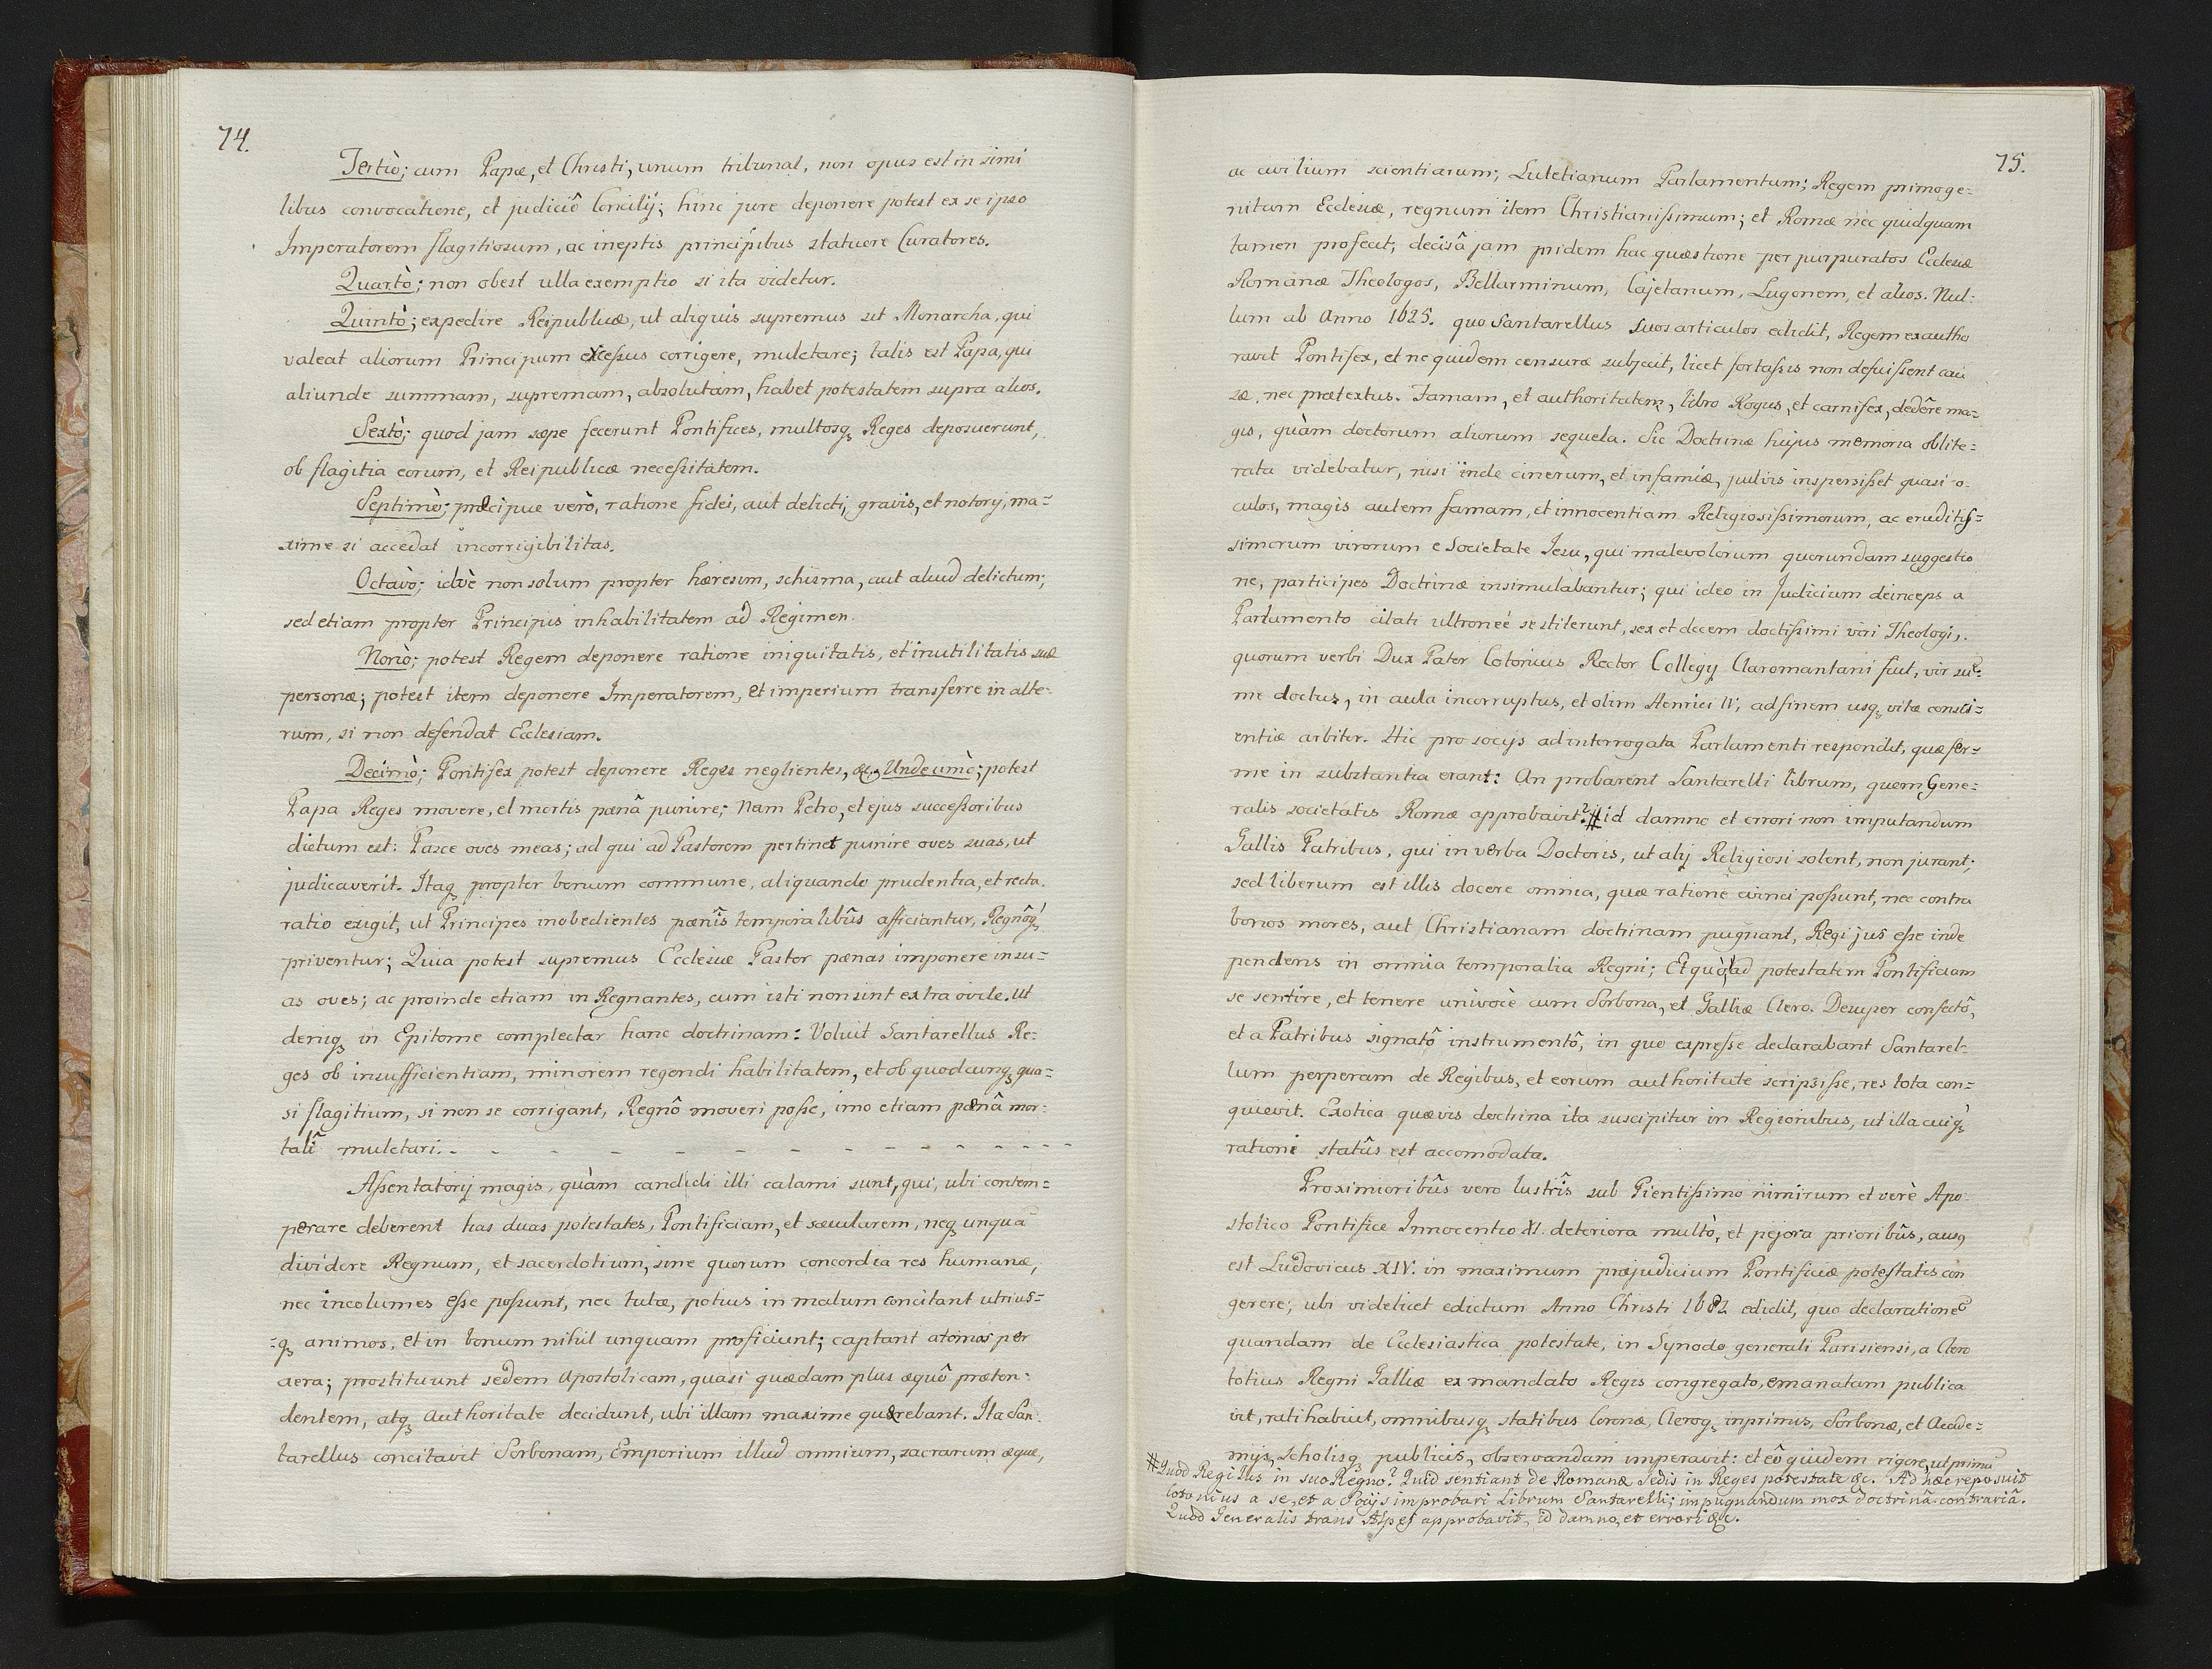 74.
Tertiò; cum Papæ, et Christi, unum tribunal, non opus est in simi
libus convocatione, et judiciô Concilÿ; hinc jure deponere potest ex se ipso
Imperatorem flagitiosum, ac ineptis principibus statuere Curatores.
Quartò; non obest ulla exemptio si ita videtur.
Quintò; expedire Reipublicæ, ut aliquis supremus sit Monarcha, qui
valeat aliorum Principum excessus corrigere, mulctare; talis est Papa, qui
aliunde summam, supremam, absolutam, habet potestatem supra alios.
Sextò; quod jam sæpe fecerunt Pontifices, multosq; Reges deposuerunt,
ob flagitia eorum, et Reipublicæ necessitatem.
Septimò; præcipue verò, ratione fidei, aut delicti, gravis, et notorÿ, ma=
xime si accedat incorrigibilitas.
Octavò; idvè non solum propter hæresim, schisma, aut aliud delictum;
sed etiam propter Principis inhabilitatem ad Regimen.
Nonò; potest Regem deponere ratione iniquitatis, et inutilitatis suæ
personæ; potest item deponere Imperatorem, et imperium transferre in alte=
rum, si non defendat Ecclesiam.
Decimò; Pontifex potest deponere Reges neglientes, &c, Undecimò; potest
Papa Reges movere, et mortis pœnâ punire; Nam Petro, et ejus successoribus
dictum est: Pasce oves meas; ad qui ad Pastorem pertinet punire oves suas, ut
judicaverit. Itaq; propter bonum commune, aliquando prudentia, et recta
ratio exigit, ut Principes inobedientes pœnis temporalibus afficiantur, Regnôq;
priventur; Quia potest supremus Ecclesiæ Pastor pœnas imponere in su=
as oves; ac proinde etiam in Regnantes, cum isti non sint extra ovile. Ut
deniq; in Epitome complectar hanc doctrinam: Voluit Santarellus Re=
ges ob insufficientiam, minorem regendi habilitatem, et ob quodcunq; qua=
si flagitium, si non se corrigant, Regnô moveri posse, imo etiam pœnâ mor=
talî mulctari. - - - - - - - - - - - - -
Assentatorÿ magis, quàm candidi illi calami sunt, qui, ubi contem=
perare deberent has duas potestates, Pontificiam, et sæcularem, neq; unquã
dividere Regnum, et sacerdotium, sine quorum concordia res humanæ,
nec incolumes esse possunt, nec tutæ, potius in malum concitant utrius=
=q; animos, et in bonum nihil unquam proficiunt; captant atomos per
aera; prostituunt sedem Apostolicam, quasi quædam plus æquô præten=
dentem, atq; Authoritate decidunt, ubi illam maxime quærebant. Ita San=
tarellus concitavit Sorbonam, Emporium illud omnium, sacrarum æque,
75.
ac civilium scientiarum; Lutetianum Parlamentum; Regem primoge=
nitum Ecclesiæ, regnum item Christianissimum; et Romæ nec quidquam
tamen profecit, decisâ jam pridem hac quæstione per purpuratos Ecclesiæ
Romanæ Theologos, Bellarminum, Cajetanum, Lugonem, et alios. Nul=
lum ab Anno 1625. quo Santarellus suos articulos edidit, Regem exautho
ravit Pontifex, et ne quidem censuræ subjecit, licet fortassis non defuissent cau
sæ, nec prætextus. Famam, et authoritatem, libro Rogus, et carnifex, dedêre ma=
gis, quàm doctorum aliorum sequela. Sic Doctrinæ hujus memoria oblite=
rata videbatur, nisi inde cinerum, et infamiæ, pulvis inspersisset quasi o=
culos, magis autem famam, et innocentiam Religiosissimorum, ac eruditis=
simorum virorum e Societate Jesu, qui malevolorum quorundam suggestio
ne, participes Doctrinæ insimulabantur; qui ideo in Judicium deinceps a
Parlamento citati ultroneè se stiterunt, sex et decem doctissimi viri Theologi,
quorum verbi Dux Pater Cotonius Rector Collegÿ Claromontani fuit, vir su=
me doctus, in aula incorruptus, et olim Henrici IV, ad finem usq; vitæ consci=
entiæ arbiter. Hic pro socÿs ad interrogata Parlamenti respondit, quæ fer=
me in substantia erant: An probarent Santarelli librum, quem Gene=
ralis societatis Romæ approbavit? # id damno et errori non imputandum
Gallis Patribus, qui in verba Doctoris, ut alÿ Religiosi solent, non jurant;
sed liberum est illis docere omnia, quæ ratione evinci possunt, nec contra
bonos mores, aut Christianam doctrinam pugnant, Regi jus esse inde
pendens in omnia temporalia Regni; Et quò ad potestatem Pontificiam
se sentire, et tenere univocè cum Sorbona, et Galliæ Clero. Desuper confectô,
et a Patribus signatô instrumentô, in quo expresse declarabant Santarel=
lum perperam de Regibus, et eorum authoritate scripsisse, res tota con=
quievit. Exotica quævis doctrina ita suscipitur in Regionibus, ut illa cuiq;
rationi statûs est accomodata.
Proximioribûs vero lustris sub Pientissimo nimirum et verè Apo=
stolico Pontifice Innocentio XI. deteriora multò, et pejora prioribûs, ausus
est Ludovicus XIV. in maximum præjudicium Pontificiæ potestatis con
gerere; ubi videlicet edictum Anno Christi 1682 edidit, quo declarationẽ
quandam de Ecclesiastica potestate, in Synodo generali Parisiensi, a Clero
totius Regni Galliæ ex mandato Regis congregato, emanatam publica
vit, ratihabuit, omnibusq; statibus Coronæ, Cleroq; inprimis, Sorbonæ, et Acade=
mÿs, scholisq; publicis, observandam imperavit: et eô quidem rigore, ut primũ
# Quod Regi Ius in suo Regno? Quid sentiant de Romanæ Sedis in Reges potestate &c. Ad hæc reposuit
Cotonius a se, et a Socÿs improbari Librum Santarelli; impugnandum mox doctrinâ contrariâ.
Quod Generalis trans Alpes approbavit, id damno, et errori &c.